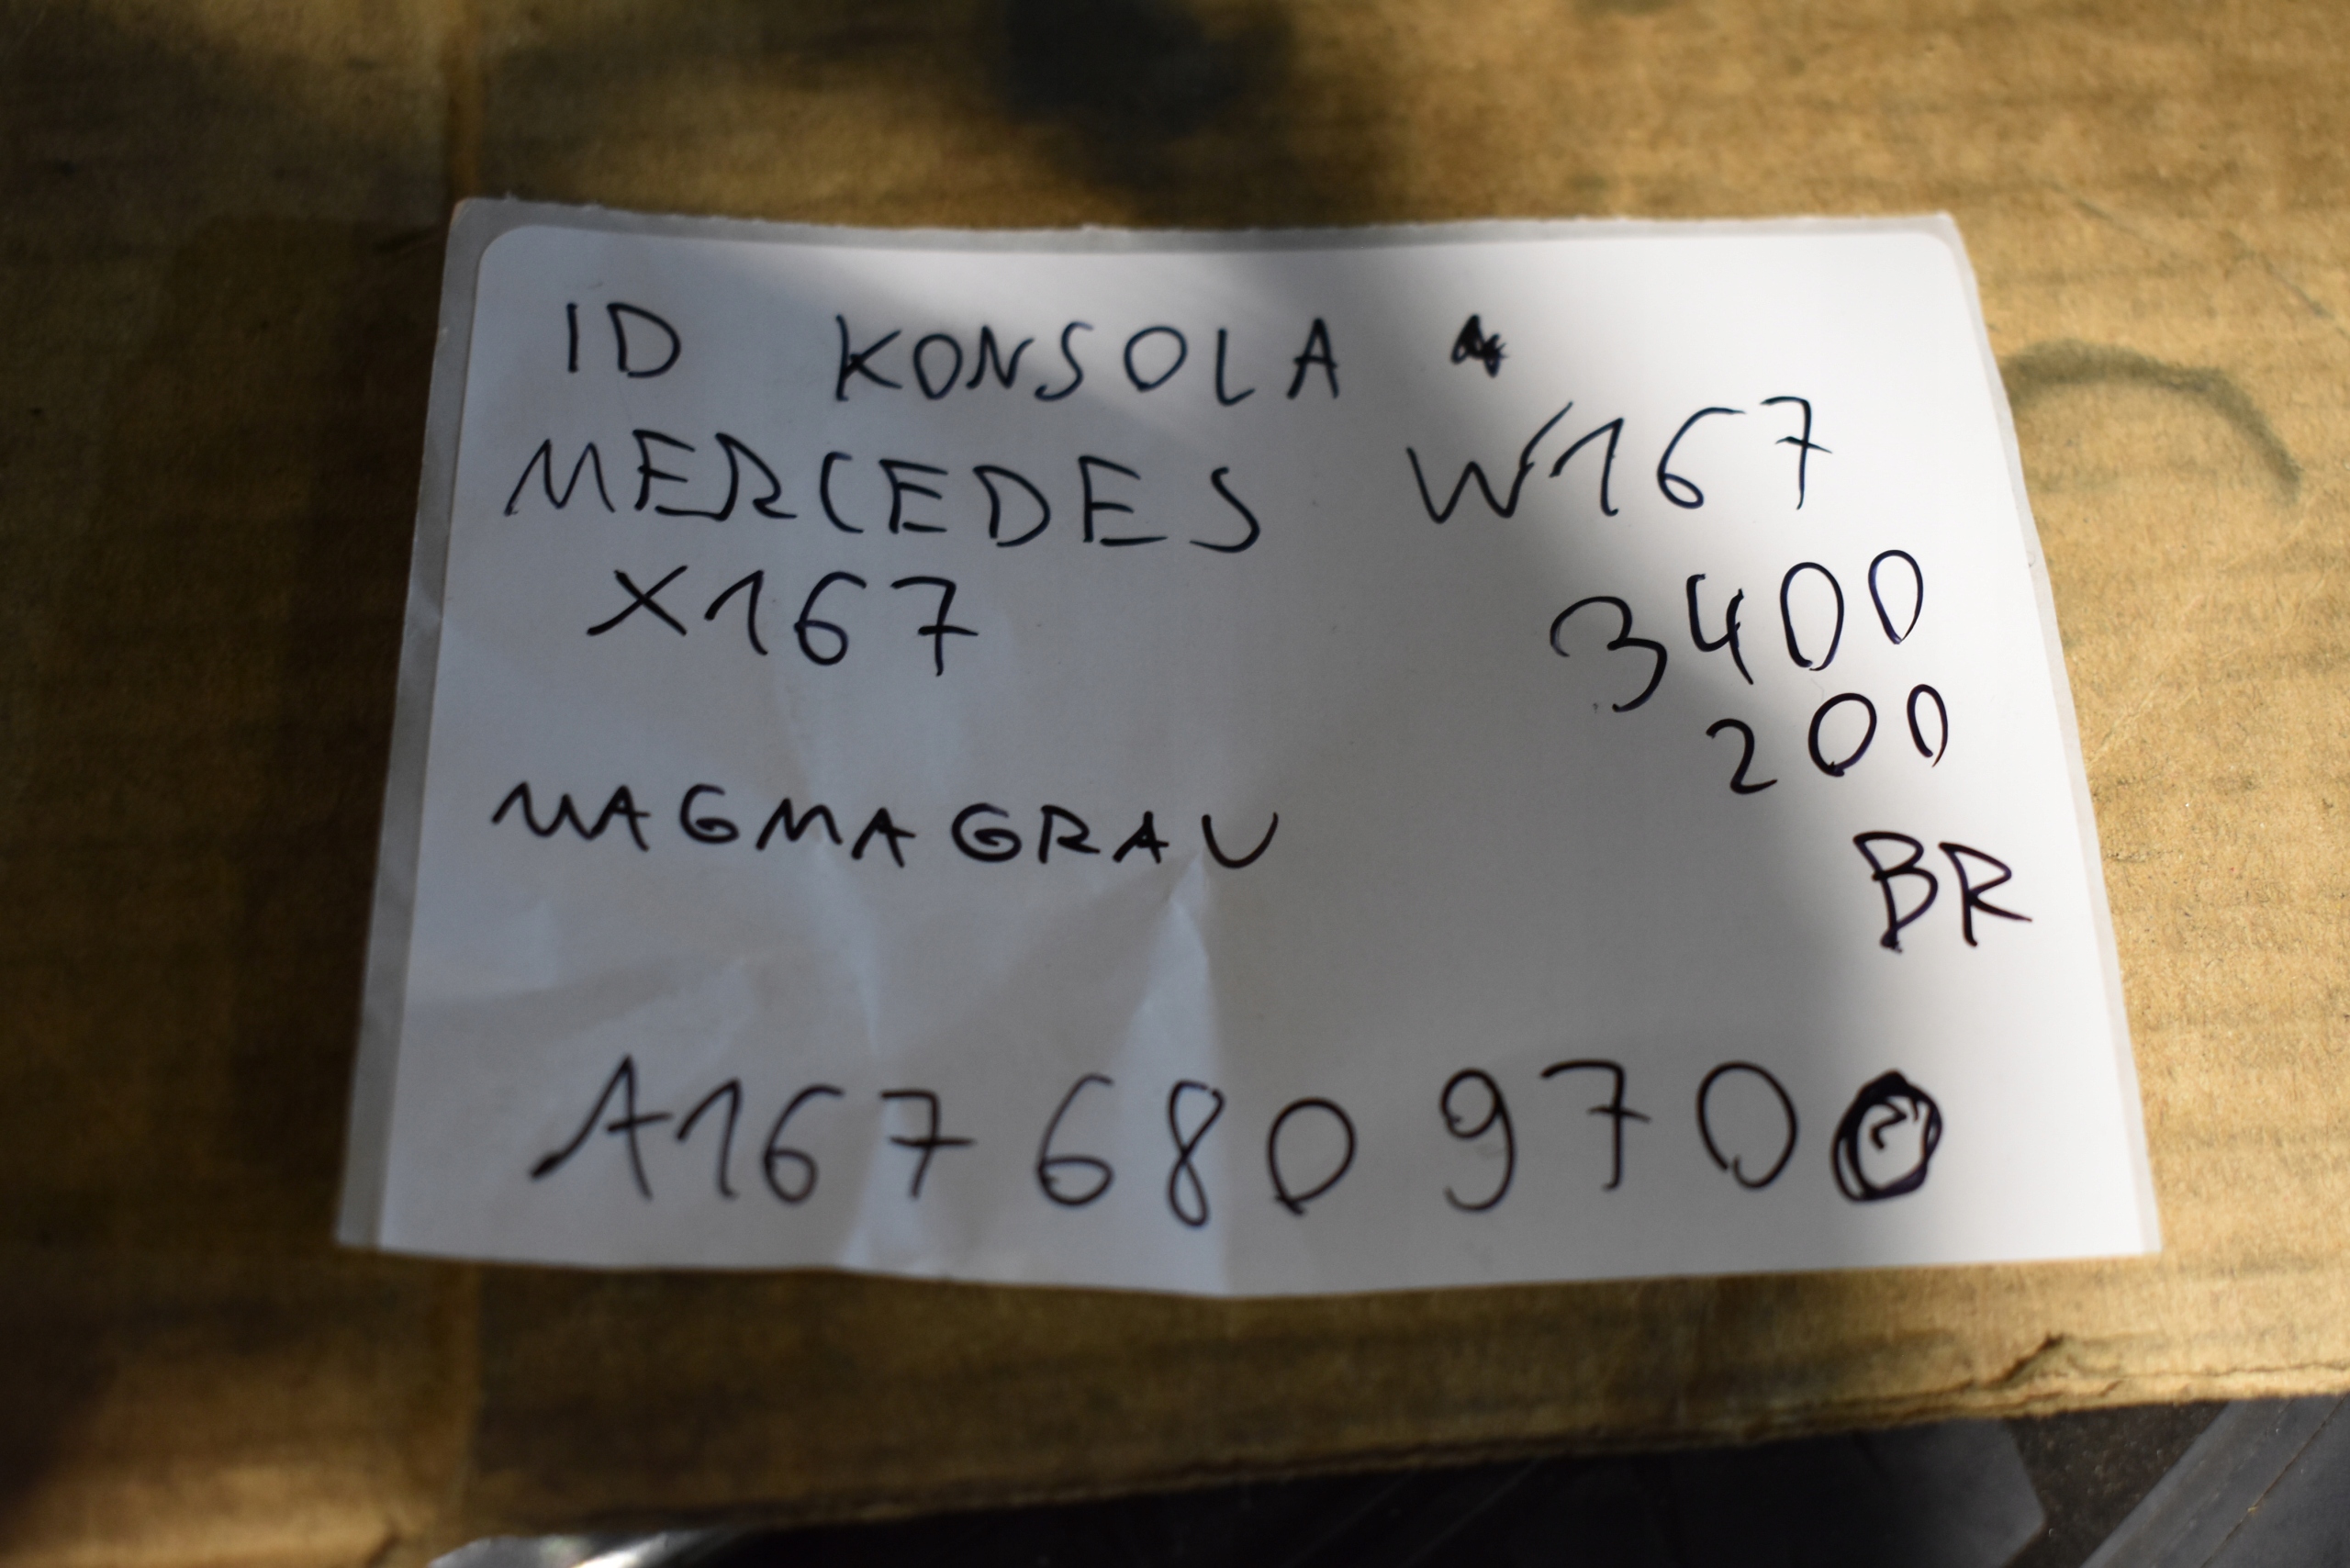 ID KONSOLA
MERCEDES W167
X167
3400
200
MAGMAGRAU
BR
A167 680 9700